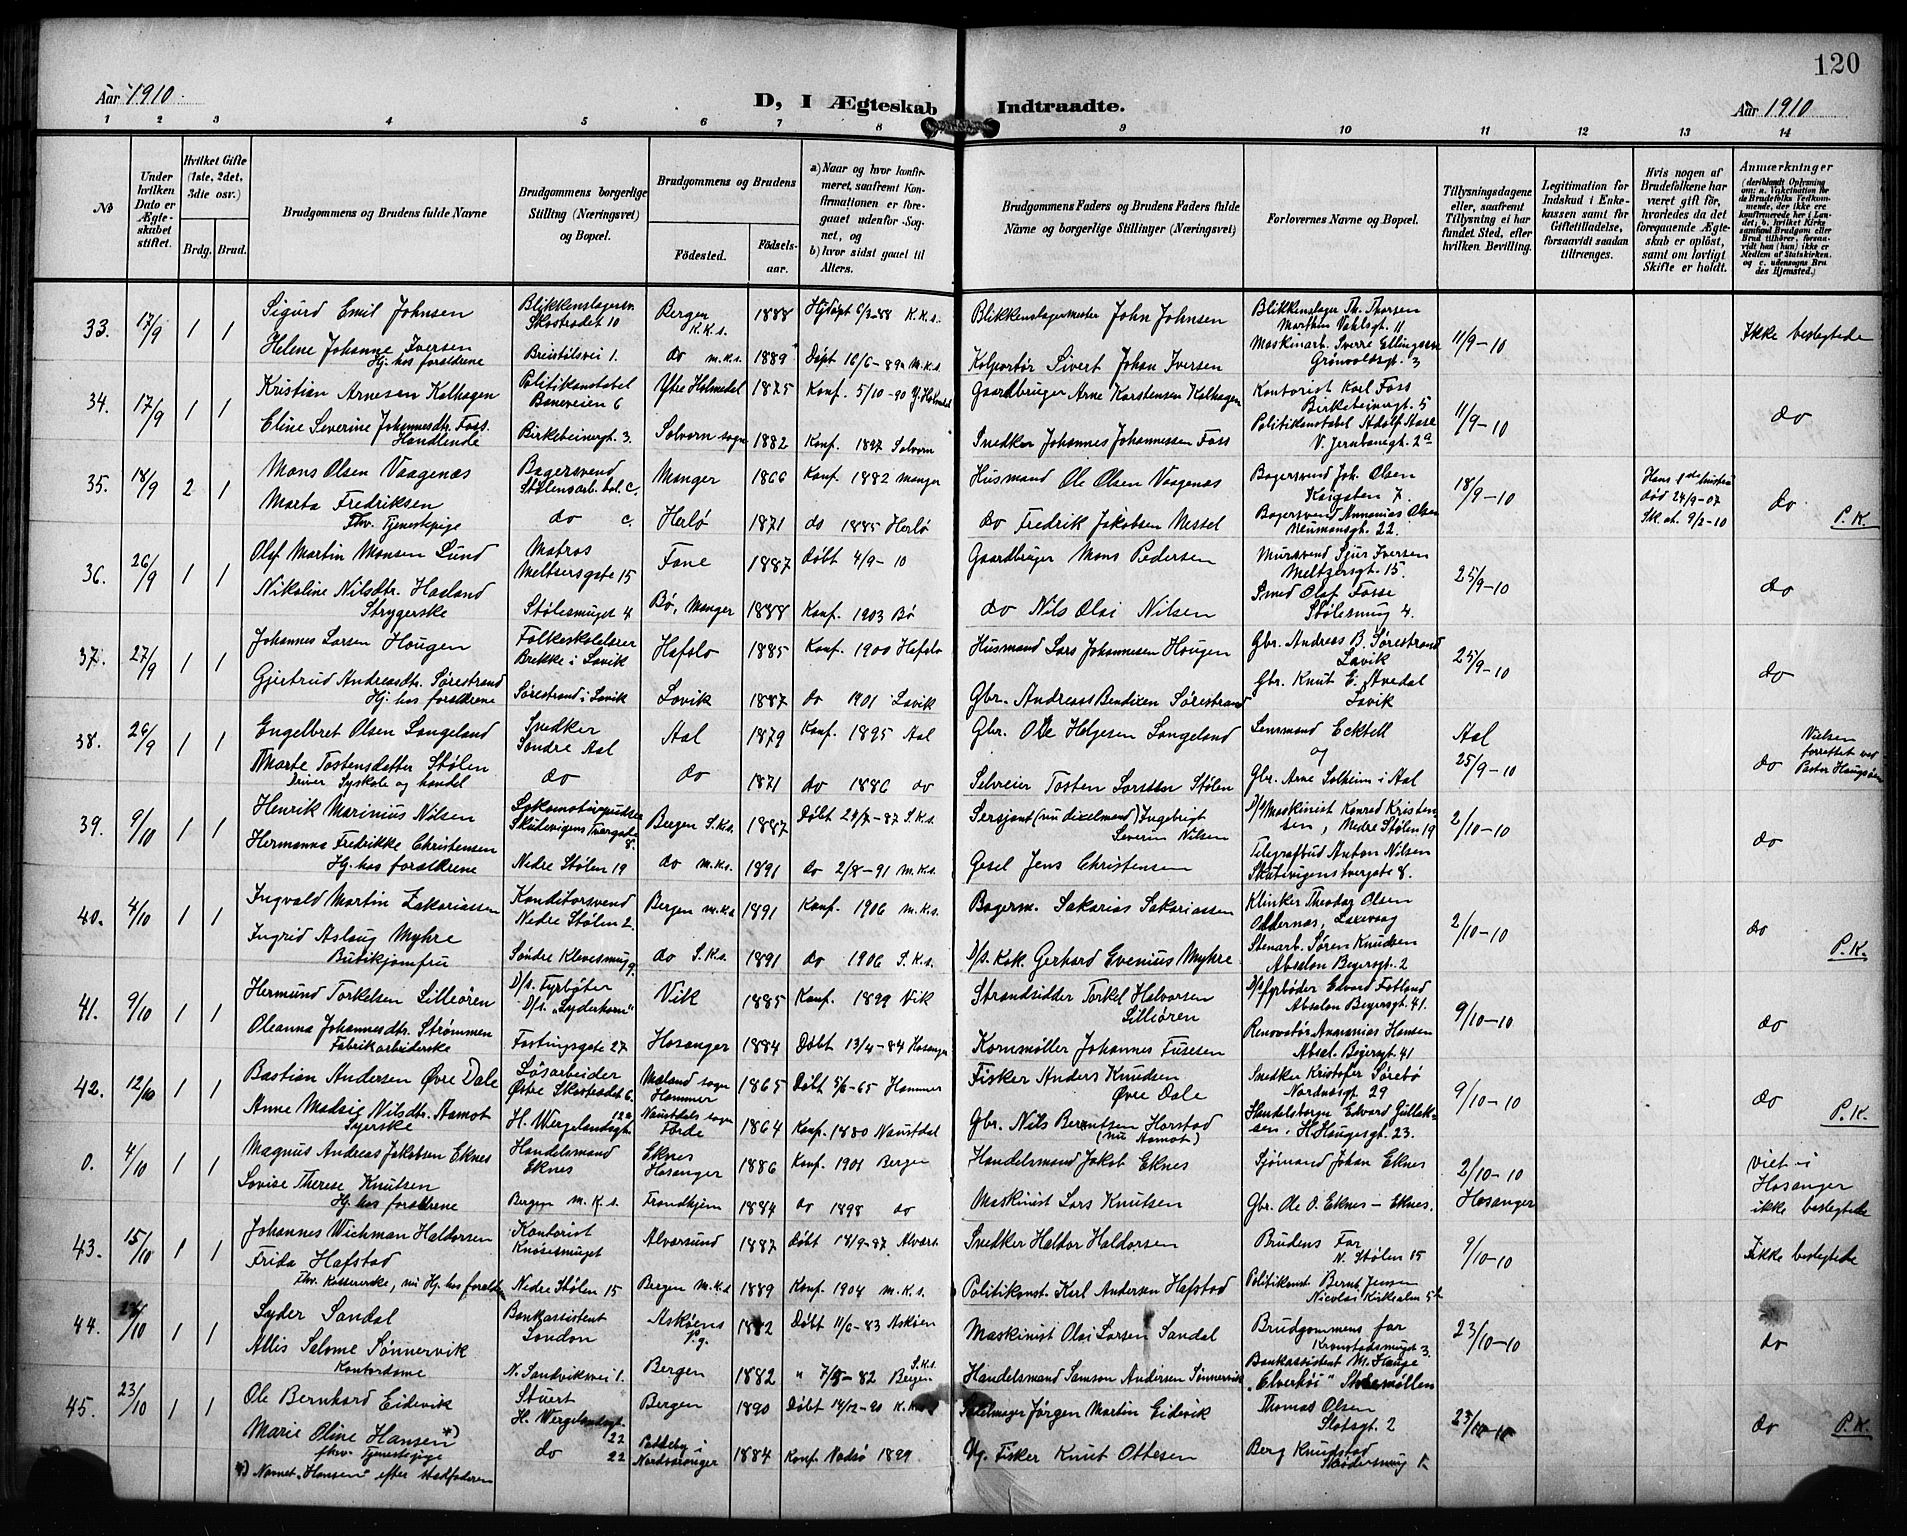 120
Aar 1910.
D, I Ægteskab Indtraadte.
Aar 1910
1 2 3 4 5 6 7 8 9 10 11 12 13 14
No
Under hvilken Dato er Ægteskabet stiftet.
Hvilket Gifte (1ste, 2det, 3die osv.)
Brdg. Brud.
Brudgommens og Brudens fulde Navne
Brudgommens borgerlige Stilling (Næringsvei) og Bopæl.
Brudgommens og Brudens
Fødested.
Fødselsaar.
a) Naar og hvor konfirmeret, saafremt Konfirmationen er foregaaet udenfor Sognet, og
b) hvor sidst gaaet til Alters.
Brudgommens Faders og Brudens Faders fulde Navne og borgerlige Stillinger (Næringsvei)
Forlovernes Navne og Bopæl.
Tillysningsdagene eller, saafremt Tillysning ei har fundet Sted, efter hvilken Bevilling.
Legitimation for Indskud i Enkekassen samt for Giftetilladelse, forsaavidt saadan tiltrænges.
Hvis nogen af Brudefolkene har været gift før, hvorledes da det foregaaende Ægteskab er opløst, samt om lovligt Skifte er holdt.
Anmærkninger
(deriblandt Oplysning om: a. Vakcination for de Brudefolks Vedkommende, der ikke ere konfirmerede her i Landet; b. hvilket Kirkesamfund Brudgom eller Brud tilhører, forsaavidt han (hun) ikke er Medlem af Statskirken. og c. udensogns Brudes Hjemsted.)
33. 17/9 1 1 Sigurd Emil Johnsen Blikkenslagersv. Skostrædet 10 Bergen K.K.s. 1888 K.K.s. Blikkenslagermester John Johnsen Blikkenslager Th. Thorsen Marthin Vahlsgt. 11 11/9-10 Ikke beslegtede
Helene Johanne Iversen Hj. hos forældrene Breistølsvei 1. do m.k.s. 1889 Døpt 16/6-89 m.k.s. Kolportør Sivert Johan Iversen Maskinarb. Sverre Ellingsen Grønvoldsgt. 3
34. 17/9 1 1 Kristian Arnesen Kalhagen Politikonstabel Baneveien 6 Ytre Holmedal 1875 Konf. 5/10-90 Y. Holmedal Gaardbruger Arne Karstensen Kalhagen Kontorist Karl Foss Birkebeinergt. 5 11/9-10 do
Eline Severine Johannesdtr. Foss. Handlende Birkebeinergt. 3. Solvorn sogn 1882 Konf. 1897 Solvorn Snedker Johannes Johannessen Foss Politikonstabel Adolf Aase V. Jernbanegt. 2a
35. 18/9 2 1 Mons Olsen Vaagenæs Bagersvend Stølens arb. bol. C. Manger 1866 Konf. 1882 Manger Husmand Ole Olsen Vaagenæs Bagersvend Joh. Olsen Kaigaten 7. 18/9-10 Hans 1ste hustru død 24/9-07 Sk. at. 9/2-10 do P.K.
Marta Fredriksen Fhv. Tjenestepige do C. Herlø 1871 do 1885 Herlø do Fredrik Jakobsen Nessel Bagersvend Annanias Olsen Neumansgt. 22.
36. 26/9 1 1 Olaf Martin Monsen Lund Matros Meltsersgate 15 Fane 1887 Døbt 4/9-10 Gaardbruger Mons Pedersen Mursvend Sjur Iversen Meltzersgt. 15. 25/9-10 do
Nikoline Nilsdtr. Haaland Strygerske Stølesmuget 4 Bø, Manger 1888 Konf. 1903 Bø do Nils Olai Nilsen Smed Olaf Fosse Stølesmug 4.
37. 27/9 1 1 Johannes Larsen Hougen Folkeskolelærer Brekke i Lavik Hafslo 1885 Konf. 1900 Hafslo Husmand Lars Johannesen Hougen Gbr. Andreas B. Sørestrand Lavik 25/9-10 do
Gjertrud Andreasdtr. Sørestrand Hj. hos forældrene Sørestrand i Lavik Lavik 1887 do 1901 Lavik Gbr. Andreas Bendixen Sørestrand Gbr. Knut E. Avedal Lavik
38. 26/9 1 1 Engelbret Olsen Langeland Snedker Søndre Aal Aal 1879 Konf. 1895 Aal Gbr. Ole Helgesen Langeland Lensmand Ecktell og Aal 25/9-10 do Vielsen forrettet ved Pastor
Marte Tostensdatter Stølen Driver Syskole og handel do do 1871 do 1886 do Selveier Tosten Larssen Stølen Gbr. Arne Solheim i Aal
39. 9/10 1 1 Henrik Marinius Nilsen Lokomotivpudser Skudevigens Tvergade 8. Bergen S.K.s. 1887 Døbt 24/7-87 S.K.s. Sersjant (nu dixelmand) Ingebrigt Severin Nilsen D/s Maskinist Konrad Kristensen, Nedre Stølen 19 2/10-10 do
Hermanna Fredrikke Christensen Hj. hos forældrene Nedre Stølen 19 do m.k.s. 1891 do 2/8-91 M.K.s. Gesel Jens Christensen Telegrafbud Anton Nilsen Skutevigens tvergate 8.
40. 4/10 1 1 Ingvald Martin Zakariassen Konditorsvend Nedre Stølen 2. Bergen m.k.s 1891 Konf. 1906 m.k.s. Bagerm. Sakarias Sakariassen Klinker Theodor Olsen Oddernæs, Laxevaag 2/10-10 do
Ingrid Aslaug Myhre Butikjomfru Søndre Klevesmug 9. do S.K.s. 1891 do 1906 S.K.s. D/s. Kok. Gerhard Evenius Myhre Stenarb. Søren Knudsen Absalon Beyersgt. 2 P.K.
41. 9/10 1 1 Hermund Torkelsen Lilleøren D/s. Fyrbøter D/s. "Lyderhorn" Vik 1885 Konf. 1899 Vik Strandsidder Torkel Halvorsen Lilleøren D/s fyrbøder Edvard Fotland Absalon Beyersgt. 41. 9/10-10 do
Oleanna Johannesdtr. Strømmen Fabrikarbeiderske Fastingsgate 27 Hosanger 1884 Døbt 13/4-84 Hosanger Kornmøller Johannes Fusesen Renovatør Ananias Hansen Absal. Beyersgt. 41
42. 12/10 1 1 Bastian Andersen Øvre Dale Løsarbeider Østre Skostrædet 6. Mæland sogn Hammer 1865 Døbt 5/6-65 Hammer Fisker Anders Knudsen Øvre Dale Snedker Kristofer Sørebø Nordnæsgt. 29 9/10-10 do
Anne Madsig Nilsdtr. Aamot Syerske H. Wergelandsgt. 12a Naustdals sogn Førde 1864 Konf. 1880 Naustdal Gbr. Nils Berentsen Horstad (nu Aamot) Handelsborger Edvard Gullaksen, H. Haugesgt. 23. P.K.
0. 4/10 1 1 Magnus Andreas Jakobsen Eknes Handelsmand Eknes Eknes Hosanger 1886 Konf. 1901 Bergen Handelsmand Jakob Eknes Sjømand Johan Eknes 2/10-10 Hosanger viet i Hosanger ikke beslegtede
Lovise Therese Knutsen Hj. hos forældrene Bergen m.K.s. Trondhjem 1884 do 1898 do Maskinist Lars Knutsen Gbr. Ole O. Eknes - Eknes.
43. 15/10 1 1 Johannes Wichman Haldorsen Kontorist Knøsesmuget Alversund 1887 Døbt 14/9-87 Alvers. Snedker Haldor Haldorsen Brudens Far N. Stølen 15 9/10-10 Ikke beslegtede
Frida Hafstad Fhv. Kassererske, nu Hj. hos foreldr. Nedre Stølen 15 Bergen m.k.s 1889 Konf. 1904 m.k.s. Politikonst. Karl Andersen Hafstad Politikonst. Bernt Jensen Nicolai Kirkealm. 5b
44. 24/10 1 1 Lyder Sandal Bankassistent London Askøens Pg. 1882 Døbt 11/6-83 Askøen Maskinist Olai Larsen Sandal Brudgommens far Kronstadsmuget 3. 23/10-10 do
Allis Salome Sønnervik Kontordame N. Sandviksvei 1. Bergen 1882 " 7/5-82 Bergen S.K.s. Handelsmand Samson Andersen Sønnervik Bankassistent M. Hauge "Elverhøi" Storemøllen
45. 23/10 1 1 Ole Bernhard Eidevik Stuert H. Wergelandsgt. 22 Bergen 1890 Døbt 14/12-90 Jørgen Martin Eidevik Thomas Olsen Slotsgt. 2 23/10-10 do P.K.
Marie Oline Hansen *) fhv. Tjenestepige do 22 Paddeby i Nordvaranger 1884 Konf. Vadsø 1899 Ug. Fisker Knut Ottesen Berg Knudstad
*) Navnet "Hansen" efter stedfaderen